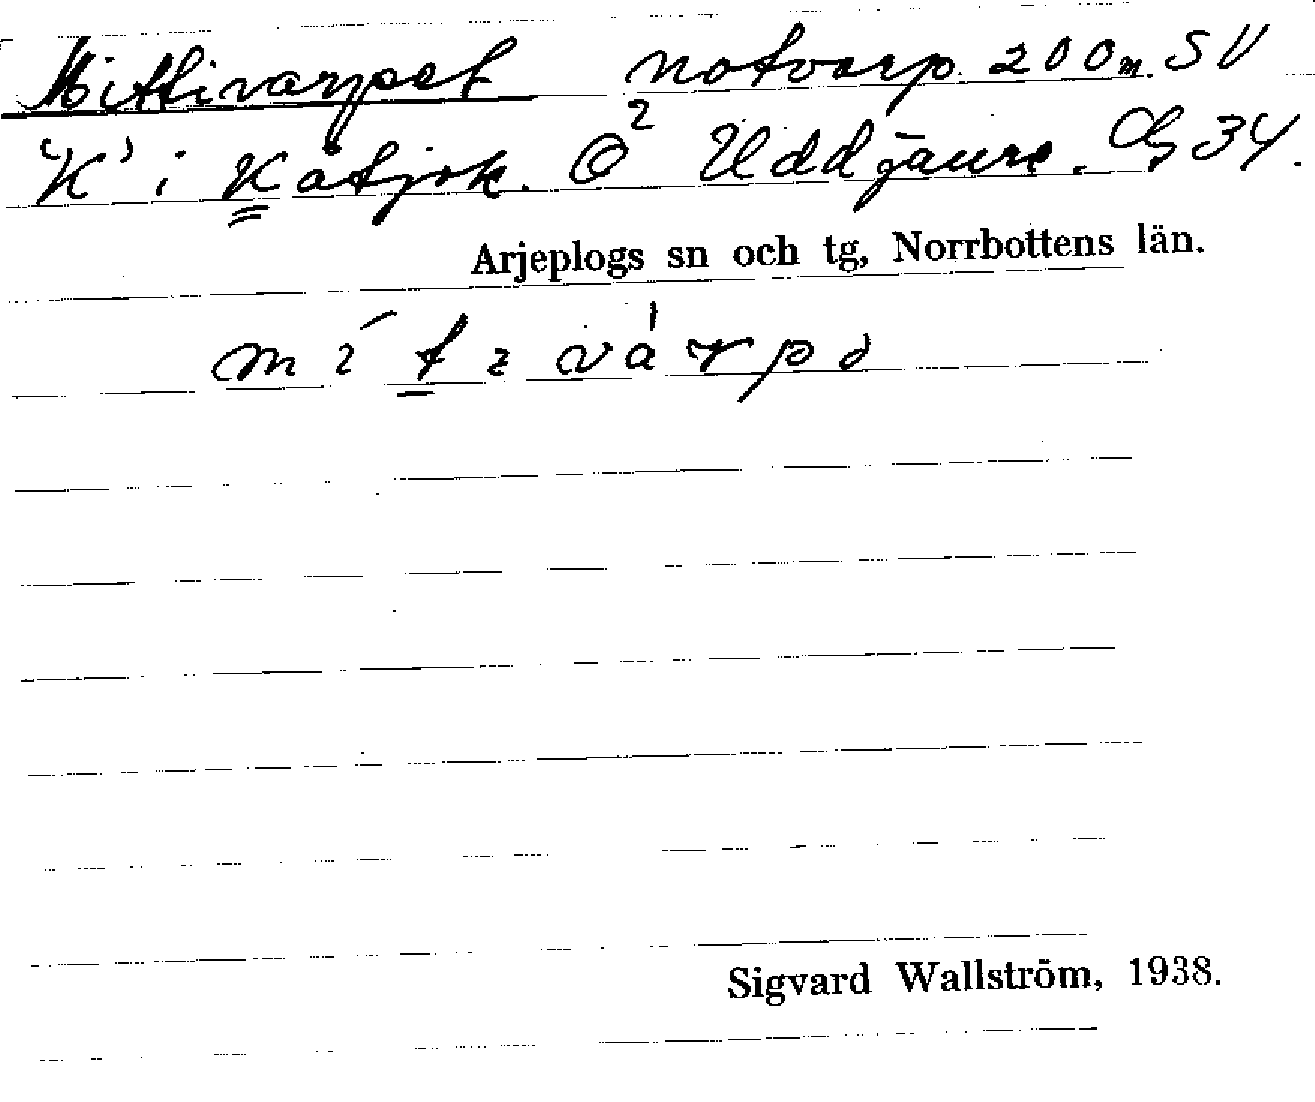 Mittivarpet notvarp 200 m. SV
'K' i Kåtjok. O² Uddjaure. Gg 34.
Arjeplogs sn och tg, Norrbottens län.
Sigvard Wallström, 1938.